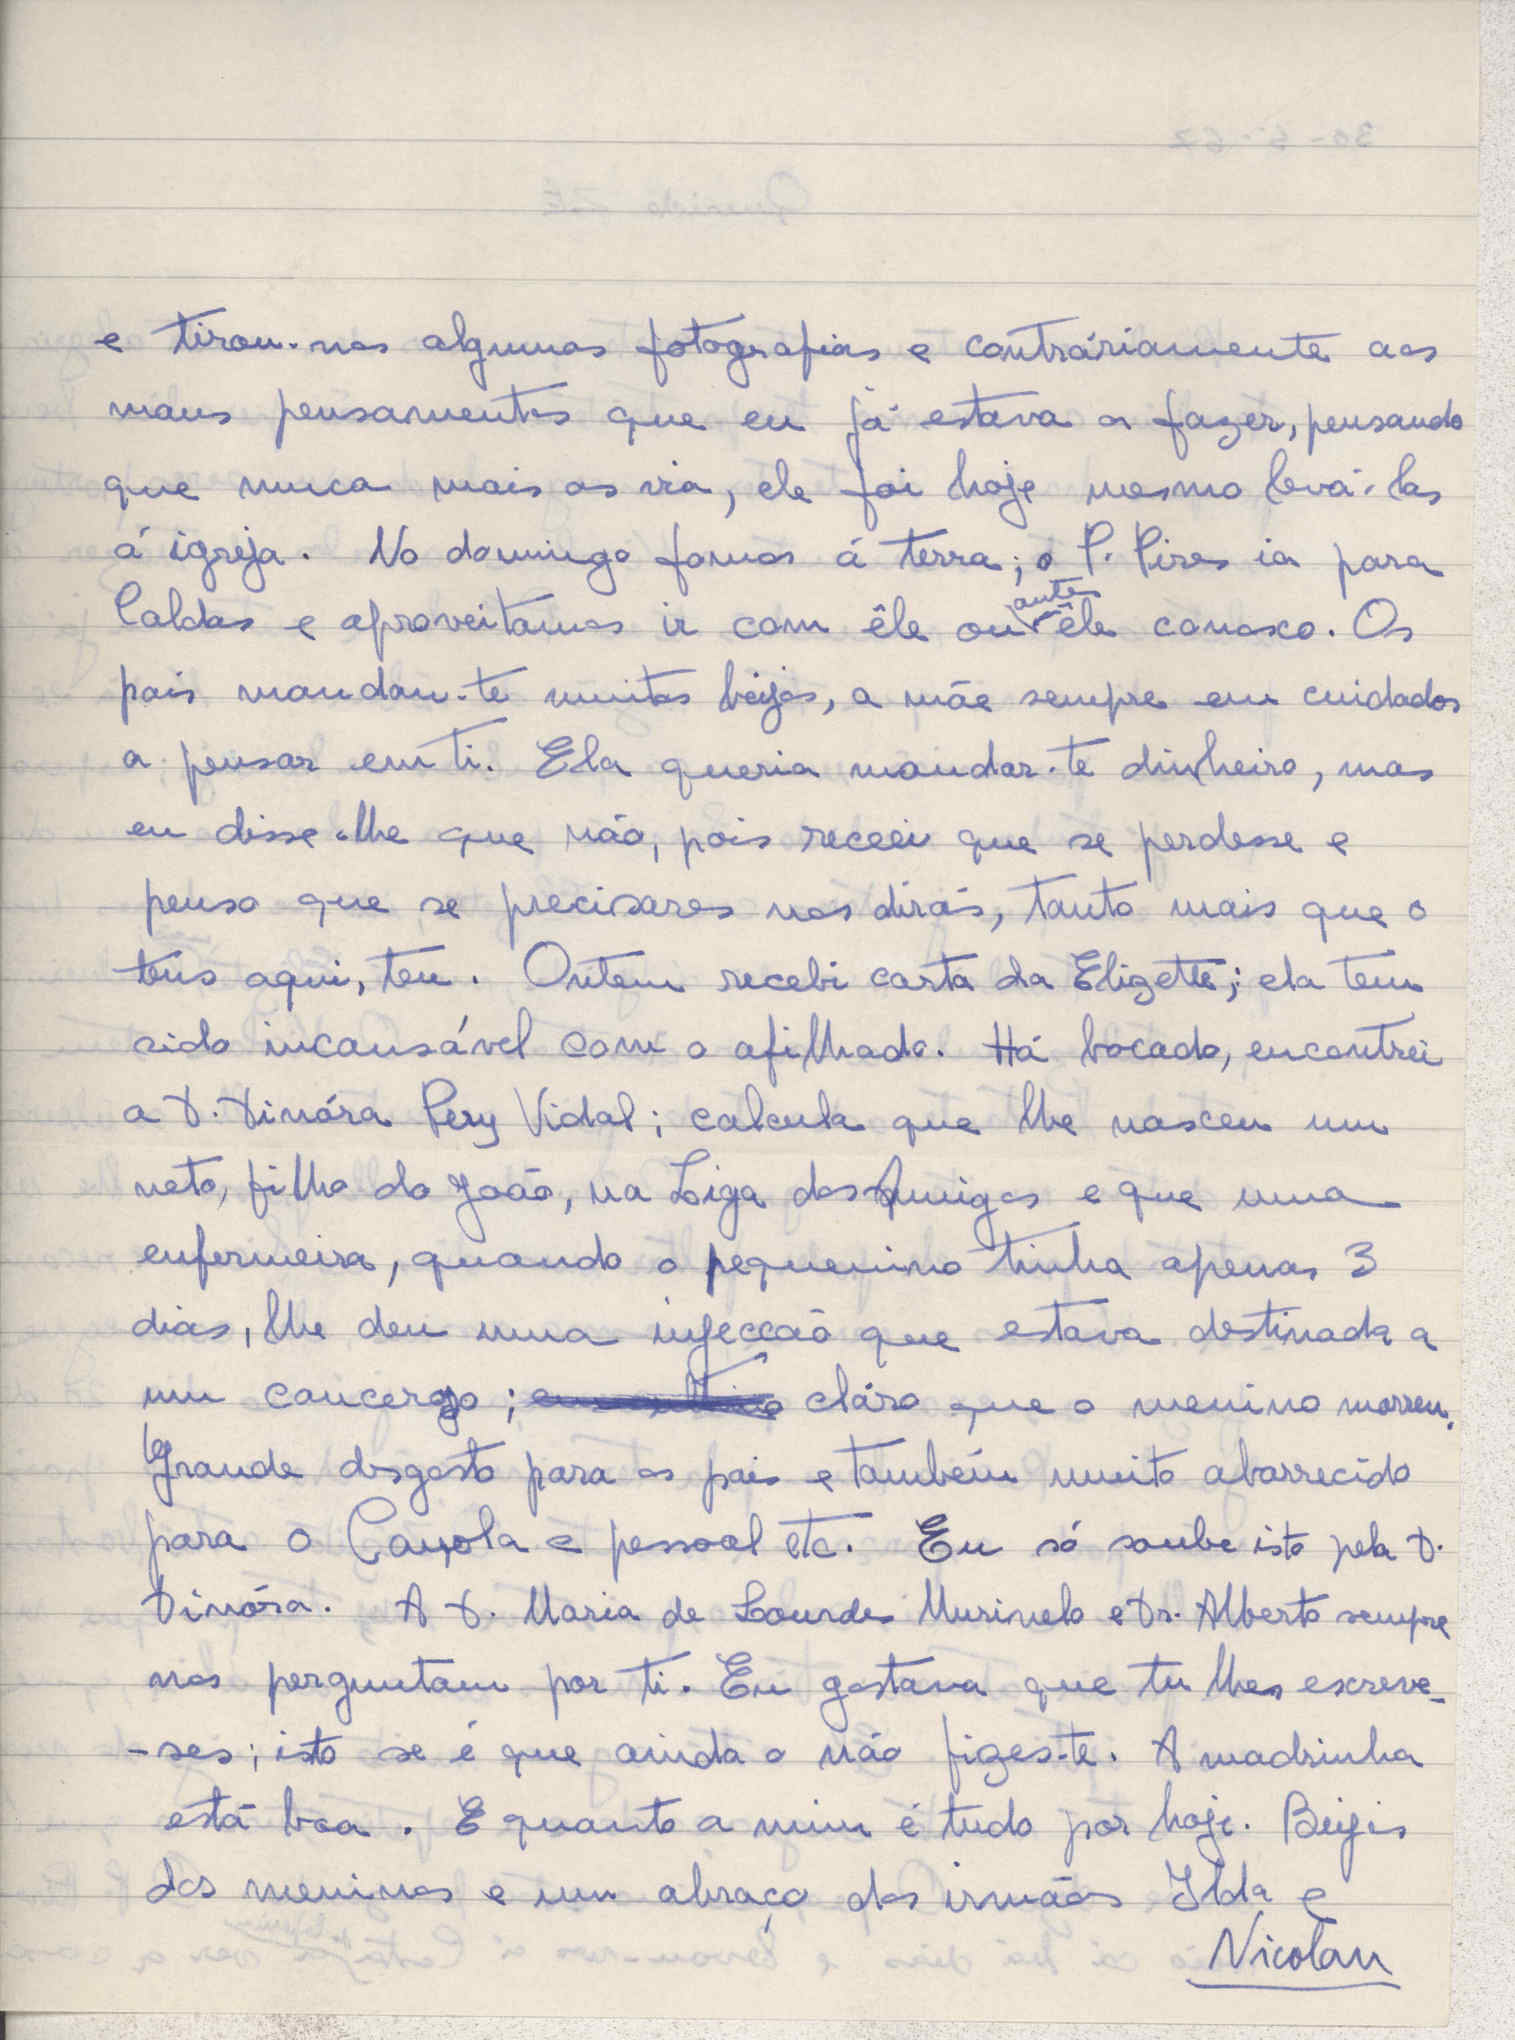 e tirou-nos algumas fotografias e contráriamente aos
maus pensamentos que eu já estava a fazer, pensando
que nunca mais as via, ele foi hoje mesmo levá-las
á igreja. No domingo fomos á terra; o P. Pires ia para
Caldas e aproveitamos ir com êle ou antes êle conosco. Os
pais mandam-te muitos beijos, a mãe sempre em cuidados
a pensar em ti. Ela queria mandar-te dinheiro, mas
eu disse-lhe que não, pois receei que se perdesse e
penso que se precisares nos dirás, tanto mais que o
tens aqui, teu. Ontem recebi carta da Elizette; ela tem
sido incansável com o afilhado. Há bocado, encontrei
a D. Dinóra Pery Vidal; calcula que lhe nasceu um
neto, filho do João, na Liga dos Amigos e que uma
enfermeira, quando o pequenino tinha apenas 3
dias, lhe deu uma injecção que estava destinada a
um canceroso; cláro que o menino morreu.
Grande desgosto para os pais e também muito aborrecido
para o Cayola e pessoal etc. Eu só soube isto pela D.
Dinóra. A D. Maria de Lourdes Murinelo e Dr. Alberto sempre
nos perguntam por ti. Eu gostava que tu lhes escreve-
-ses; isto se é que ainda o não fizes-te. A madrinha
está boa. E quanto a mim é tudo por hoje. Beijis
dos meninos e um abraço dos irmãos Ilda e
Nicolau